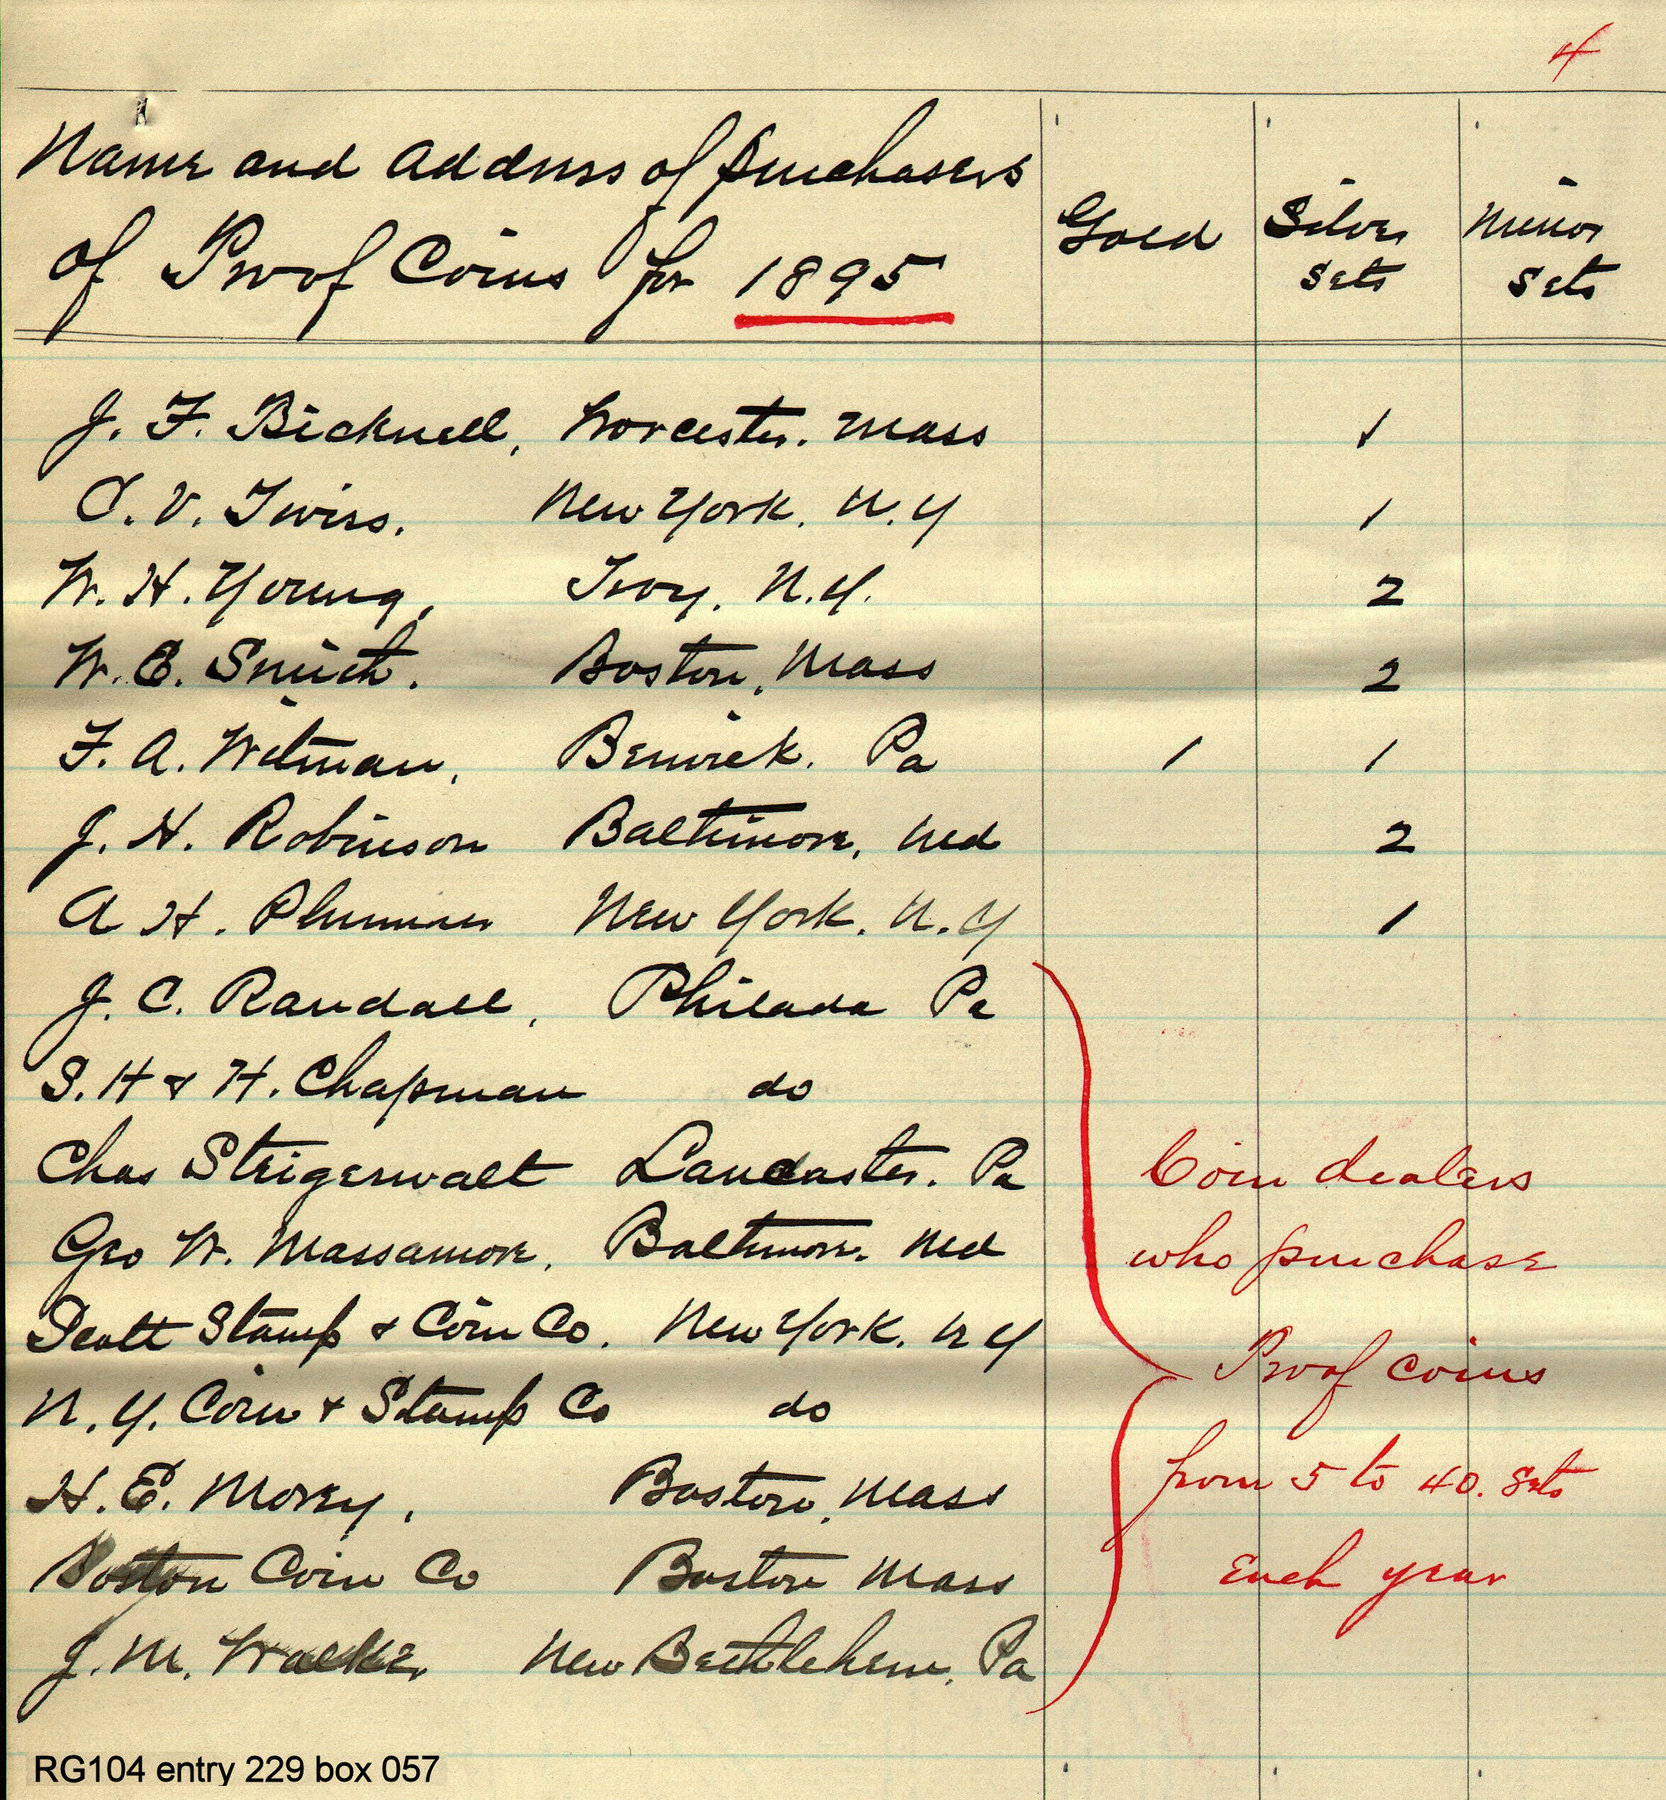 4
Name and address of purchasers
of Proof Coins for 1895
Gold
Silver
Sets
Minor
Sets
J. F. Bicknell, Worcester. Mass 1
C. V. Twiss. New York. N.Y 1
W. H. Young, Troy, N.Y. 2
W. E. Smith. Boston, Mass 2
F. A. Witman, Berwick. Pa 1 1
J. H. Robinson Baltimore, Md 2
A H. Plummer New York. N.Y 1
J. C. Randall, Philada Pa
S. H & H. Chapman do
Chas Steigerwalt Lancaster. Pa
Geo W. Massamore, Baltimore. Md
Scott Stamp & Coin Co. New York. N Y
N. Y. Coin & Stamp Co do
H. E. Morey, Boston, Mass
Boston Coin Co Boston Mass
J. M. Walker New Bethlehem, Pa
Coin dealers
who purchase
Proof coins
from 5 to 40. Sets
Each year
RG104 entry 229 box 057